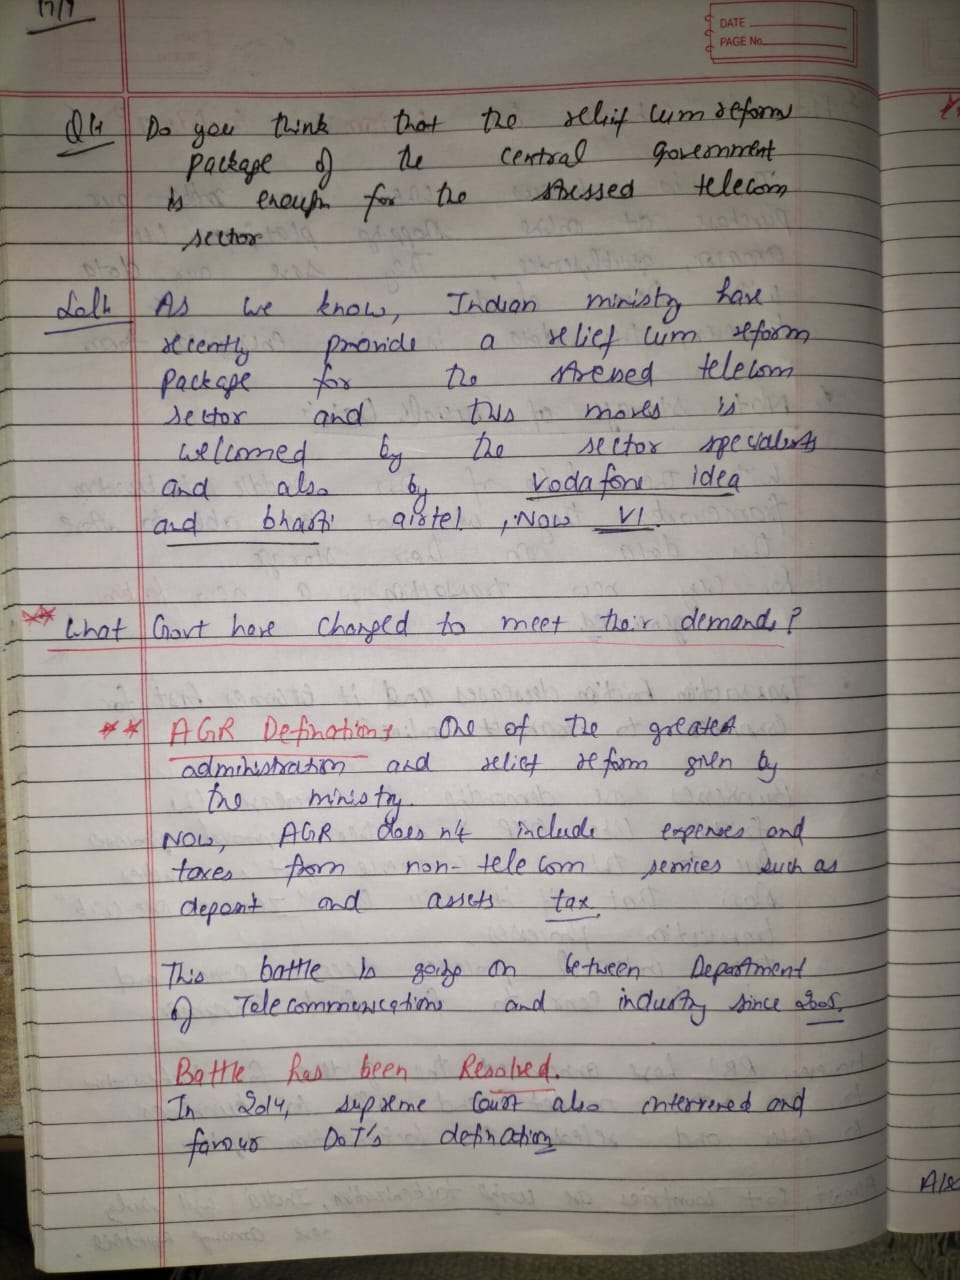 17/9
DATE
PAGE No.
Q4 Do you think that the relief cum reform
package of the central government
is enough for the stressed telecom
sector
As we know, Indian ministry have
recently provide a relief cum reform
package for the stressed telecom
sector and this moves is
welcomed by the sector specialists
and also by vodafone idea
and bharti airtel, Now VI.
** What Govt have changed to meet their demands?
** AGR Defination: One of the greatest
administration and relief reform given by
the ministry.
Now, AGR does n't include expenses and
taxes from non-telecom services such as
deposit and assets tax.
This battle is going on between Department
of Telecommunications and industry since 2005.
Battle has been Resolved.
In 2014, supreme Court also intervened and
favour DoT's defination